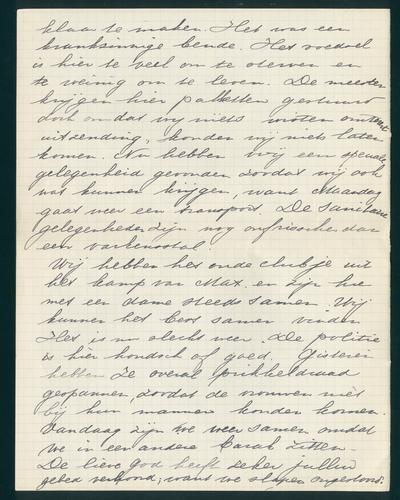 klaar te maken. Het was een
krankzinnige bende. Het voedsel
is hier te veel om te sterven en
te weinig om te leven. De meesten
krijgen hier paketten gestuurd
doch omdat wij niets wisten omtrent
uitzending, konden wij niets laten
komen. Nu hebben wij een speciale
gelegenheid gevonden zoodat wij ook
wat kunnen krijgen, want Maandag
gaat weer een transport. De sanitaire
gelegenheden zijn nog onfrisscher dan
een varkensstal.
Wij hebben het oude clubje uit
het kamp van Max en zijn hier
met een dame steeds samen. Wij
kunnen het best samen vinden
Het is nu slecht weer. De politie
is hier hondsch of goed. Gisteren
hebben ze overal prikkeldraad
gespannen, zoodat de vrouwen niet
bij hun mannen konden komen.
Vandaag zijn we weer samen omdat
we in een andere Barak zitten.
De lieve God heeft zeker jullie
gebed verhoord; want we slapen ongestoord.